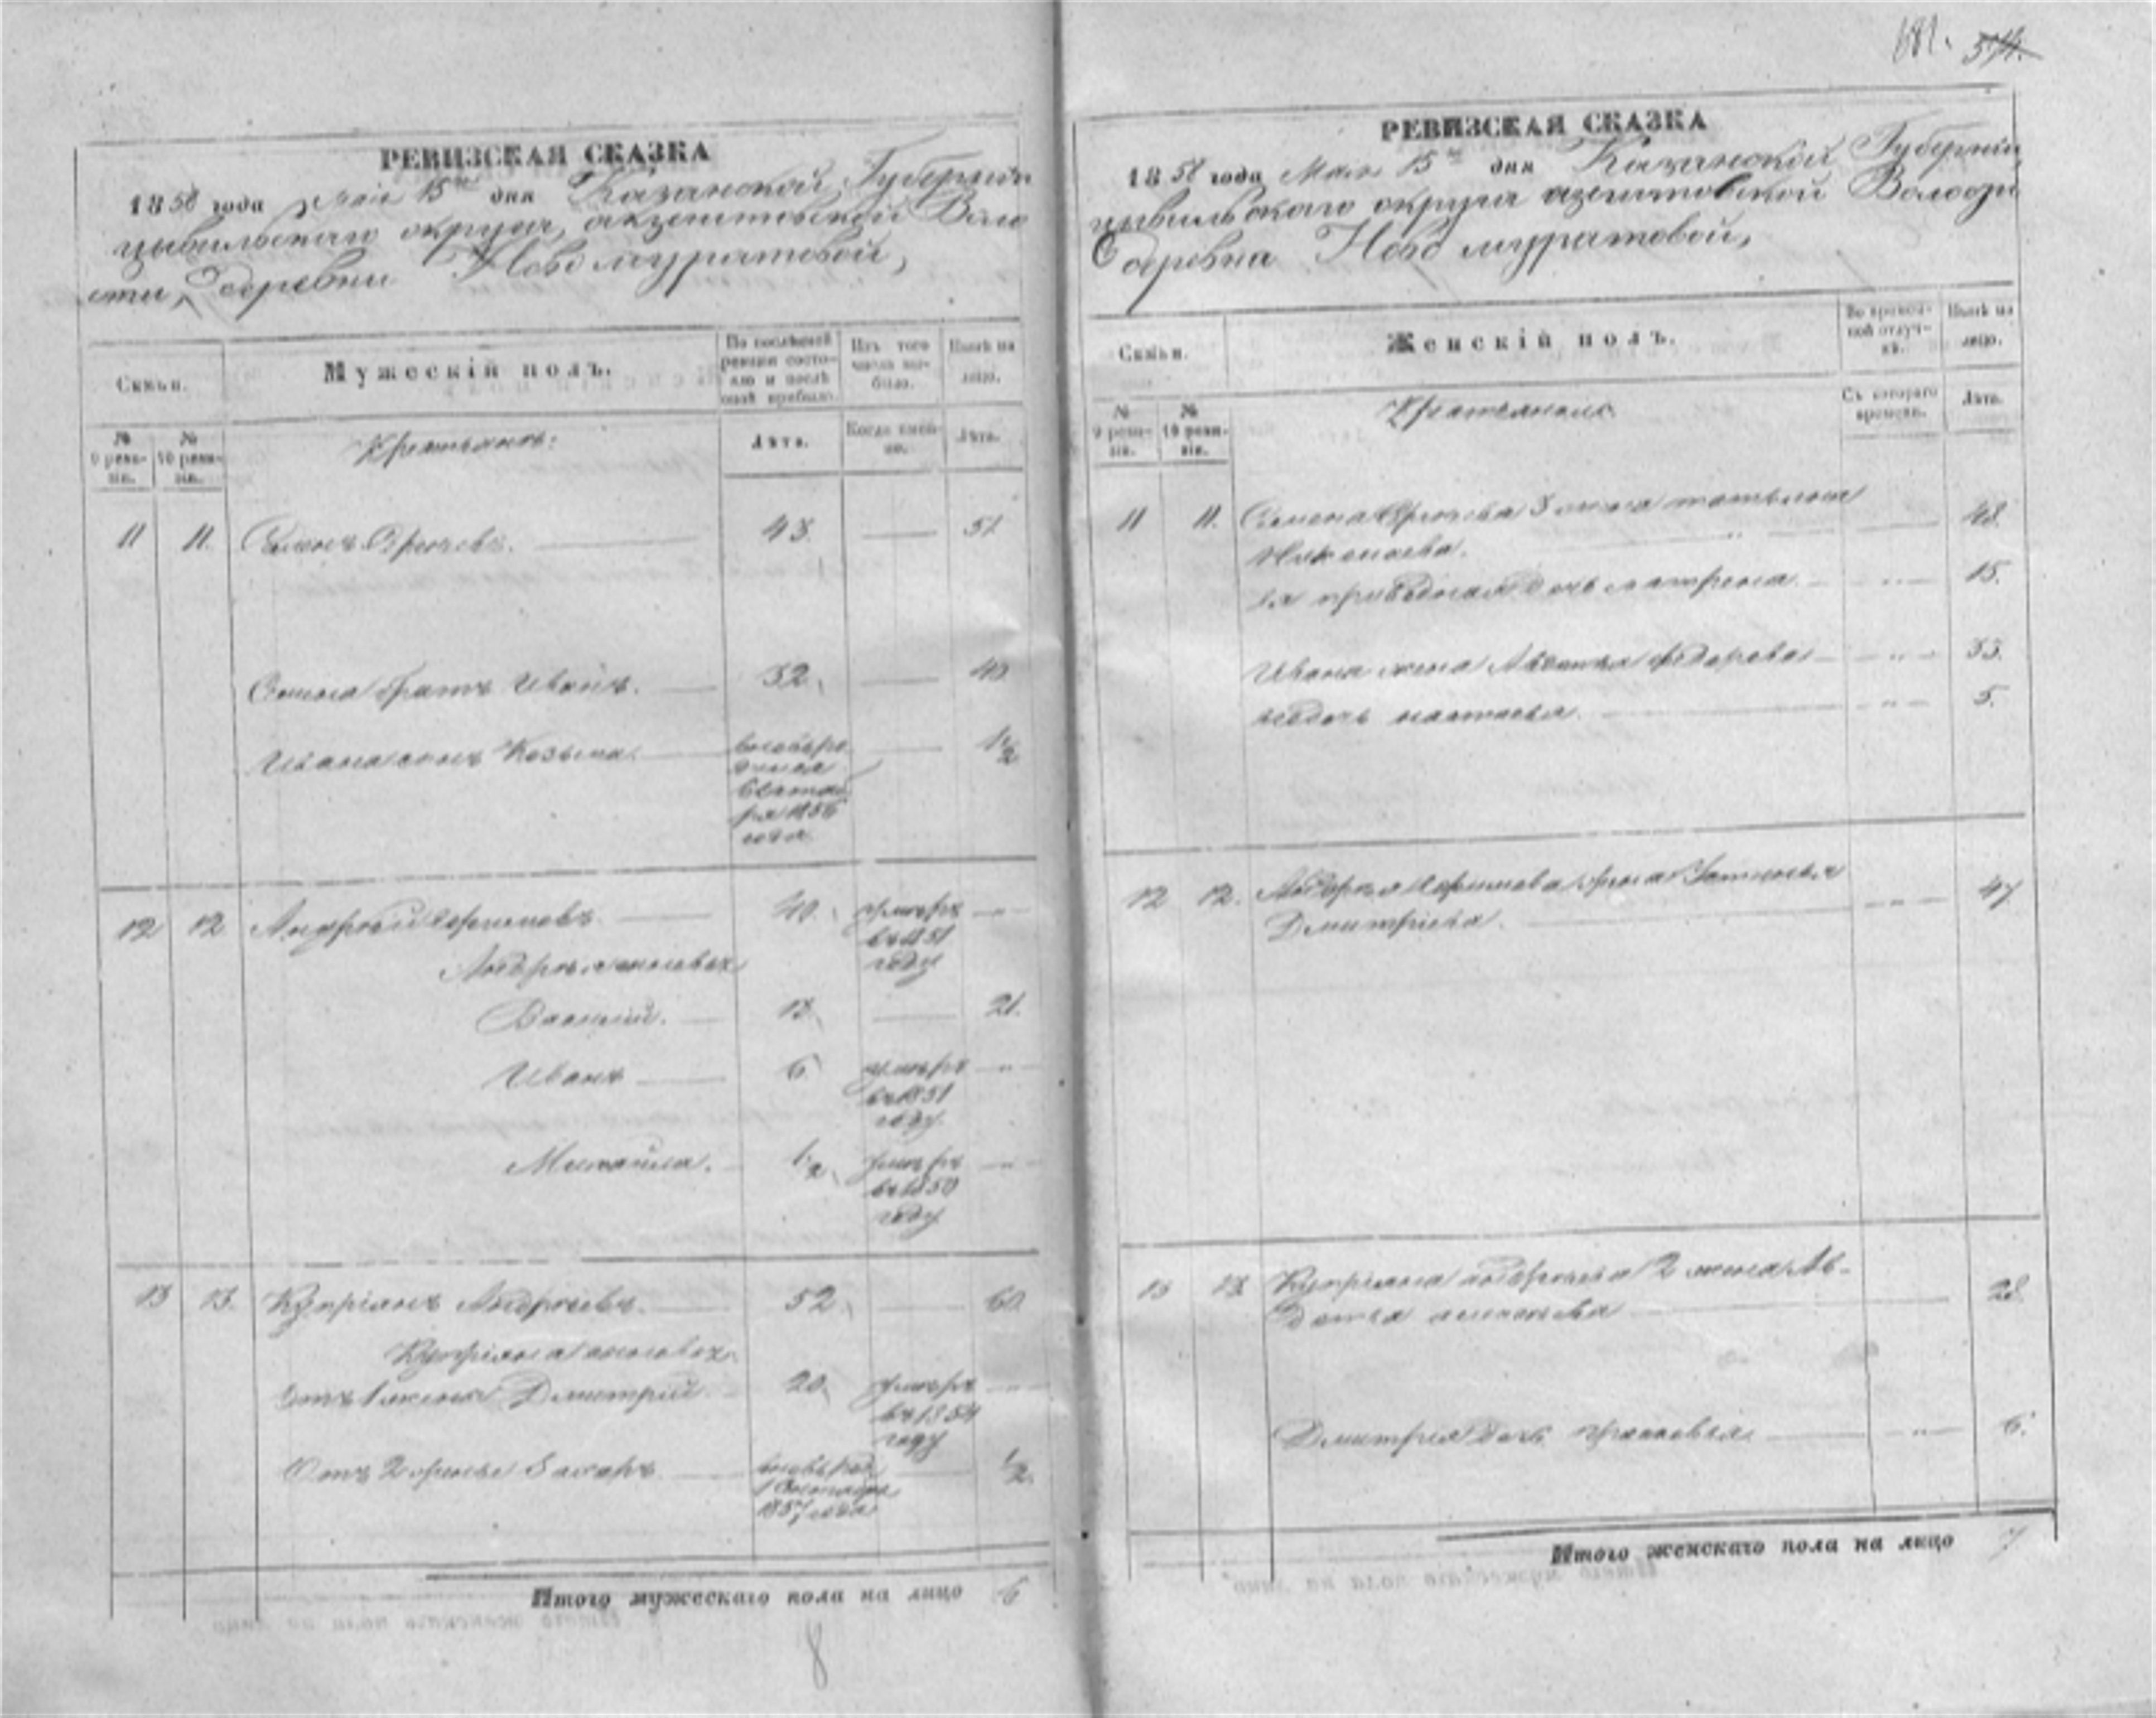 681. 571.
РЕВИЗСКАЯ СКАЗКА
1858 года мая 15го дня Казанской Губернии
цивильскаго округа, Воло
сти, деревни Ново муратовой,
Семьи.
Мужескій полъ.
По послѣдней ревизіи состояло и послѣ оной прибыло.
Изъ того числа выбыло.
Нынѣ на лицо.
№ 9 ревизіи.
№ 10 ревизіи.
Крестьянъ:
Лѣта.
Когда именно.
Лѣта.
11 11. Семенъ 43. 51
Семена братъ Иванъ. 32. 40
Ивана сынъ Козьма. 1 1/2
1856
года
12 12 Андрей Ефимовъ. 40. умеръ
въ 1851
году
Андрея сыновья
Василий. 13. 21.
Иванъ 6 умеръ
въ 1851
году.
Михайла. 1/2 умеръ
въ 1850
году
13 13. Купріянъ Андреевъ. 52. 60.
Купріяна сыновья
отъ 1 жены Дмитрій 20. умеръ
въ 1854
году
Отъ 2 жены Захаръ
1857 года 1/2.
Итого мужескаго пола на лицо 6
8
РЕВИЗСКАЯ СКАЗКА
1858 года Мая 15го дня Казанской Губерніи
цивильскаго округа Волости
деревна Ново муратовой,
Семьи.
Женскій полъ.
Во временной отлучкѣ.
Нынѣ на лицо.
№ 9 ревизіи.
№ 10 ревизіи.
Съ котораго времени.
Лѣта.
11 11. Семена 3 жена татьяна 48.
Николаева.
Ея приводная дочь матрена. 15.
Ивана жена Авдотья федорова 33.
дочь настасья. 5.
12 12. Андрея Ефимова жена Устинья
Дмитріева. 47
13 13. Купріяна андреева 2 жена Ав-
дотья 28.
Дмитрія дочь Прасковья 6.
Итого женскаго пола на лицо 7